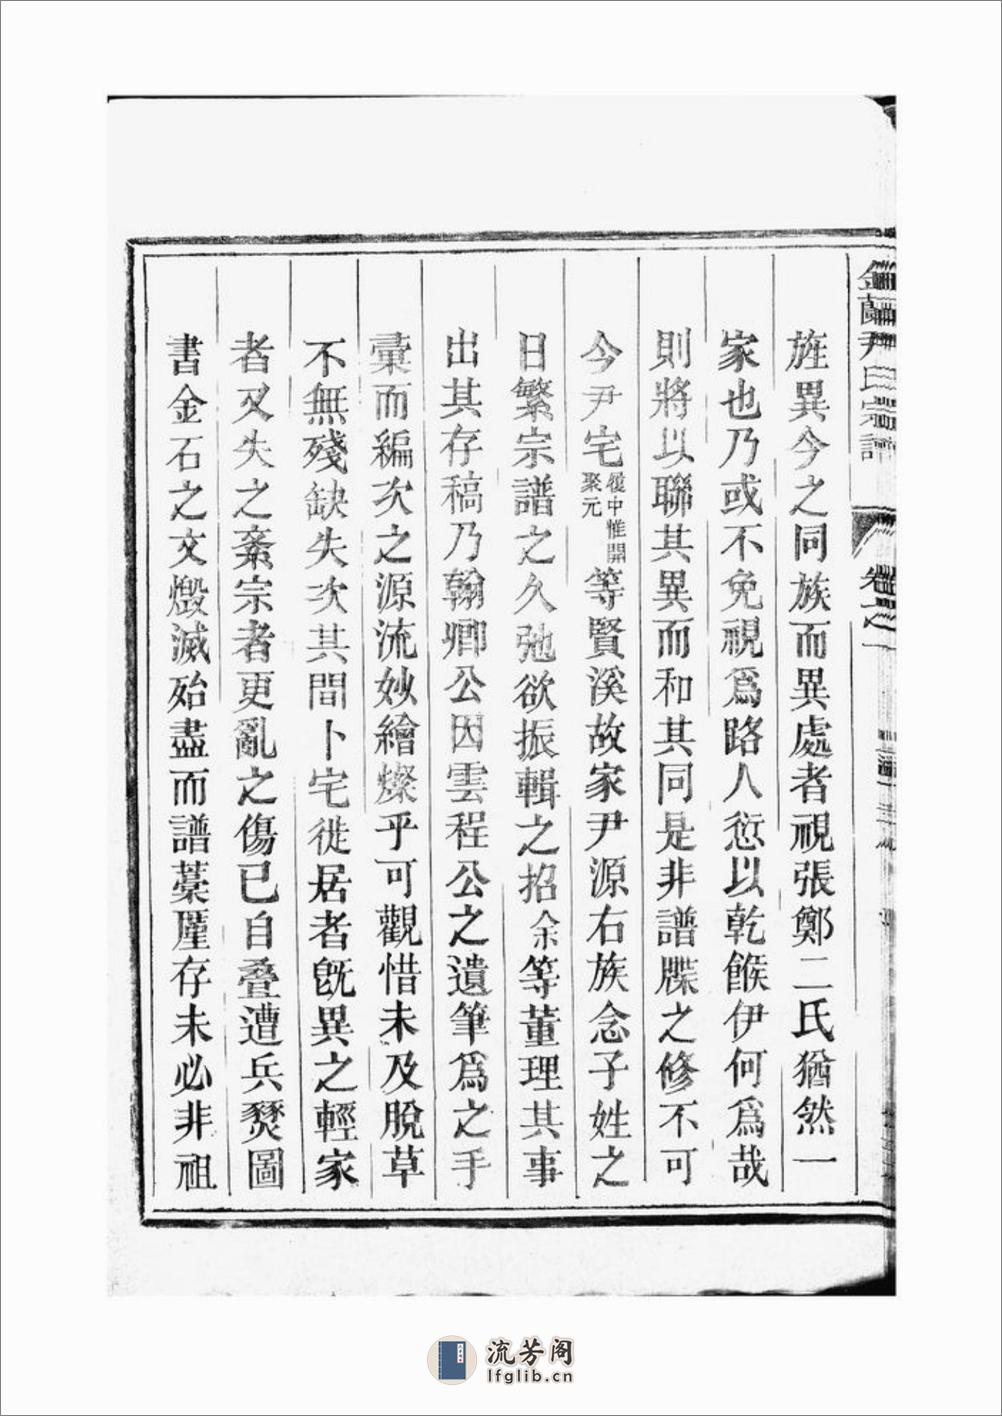 金蘭尹氏宗譜 卷之一
旌異今之同族而異處者視張鄭二氏猶然一
家也乃或不免視爲路人愆以乾餱伊何爲哉
則將以聯其異而和其同是非譜牒之修不可
今尹宅履中惟開聚元等賢溪故家尹源右族念子姓之
日繁宗譜之久弛欲振輯之招余等董理其事
出其存稿乃翰卿公因雲程公之遺筆爲之手
彙而編次之源流妙繪燦乎可觀惜未及脫草
不無殘缺失次其間卜宅徙居者旣異之輕家
者又失之紊宗者更亂之傷已自疊遭兵燹圖
書金石之文燬滅殆盡而譜藁厪存未必非祖
流芳阁
lfglib.cn